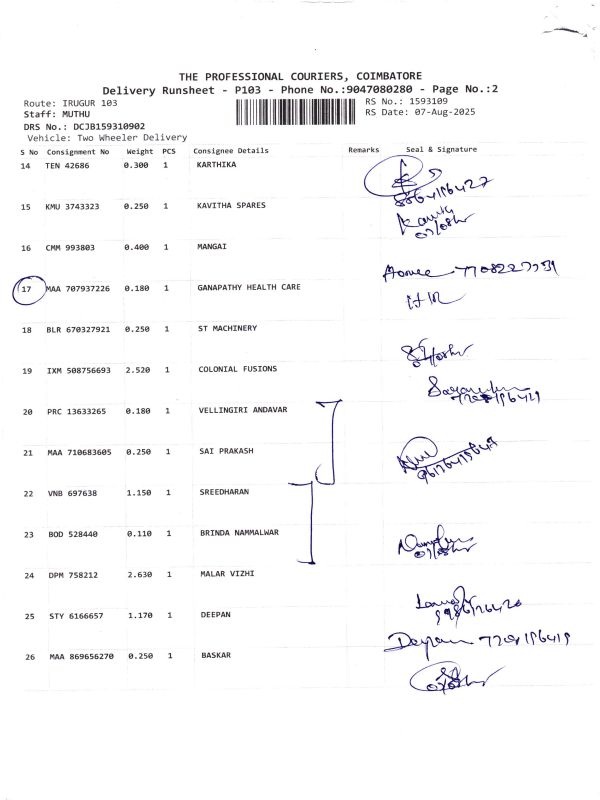 THE PROFESSIONAL COURIERS, COIMBATORE
Delivery Runsheet - P103 - Phone No.:9047080280 - Page No.:2
Route: IRUGUR 103 RS No.: 1593109
Staff: MUTHU RS Date: 07-Aug-2025
DRS No.: DCJB159310902
Vehicle: Two Wheeler Delivery
S No Consignment No Weight PCS Consignee Details Remarks Seal & Signature
14 TEN 42686 0.300 1 KARTHIKA
15 KMU 3743323 0.250 1 KAVITHA SPARES
16 CMM 993803 0.400 1 MANGAI
17 MAA 707937226 0.180 1 GANAPATHY HEALTH CARE
18 BLR 670327921 0.250 1 ST MACHINERY
19 IXM 508756693 2.520 1 COLONIAL FUSIONS
20 PRC 13633265 0.180 1 VELLINGIRI ANDAVAR
21 MAA 710683605 0.250 1 SAI PRAKASH
22 VNB 697638 1.150 1 SREEDHARAN
23 BOD 528440 0.110 1 BRINDA NAMMALWAR
24 DPM 758212 2.630 1 MALAR VIZHI
25 STY 6166657 1.170 1 DEEPAN
26 MAA 869656270 0.250 1 BASKAR